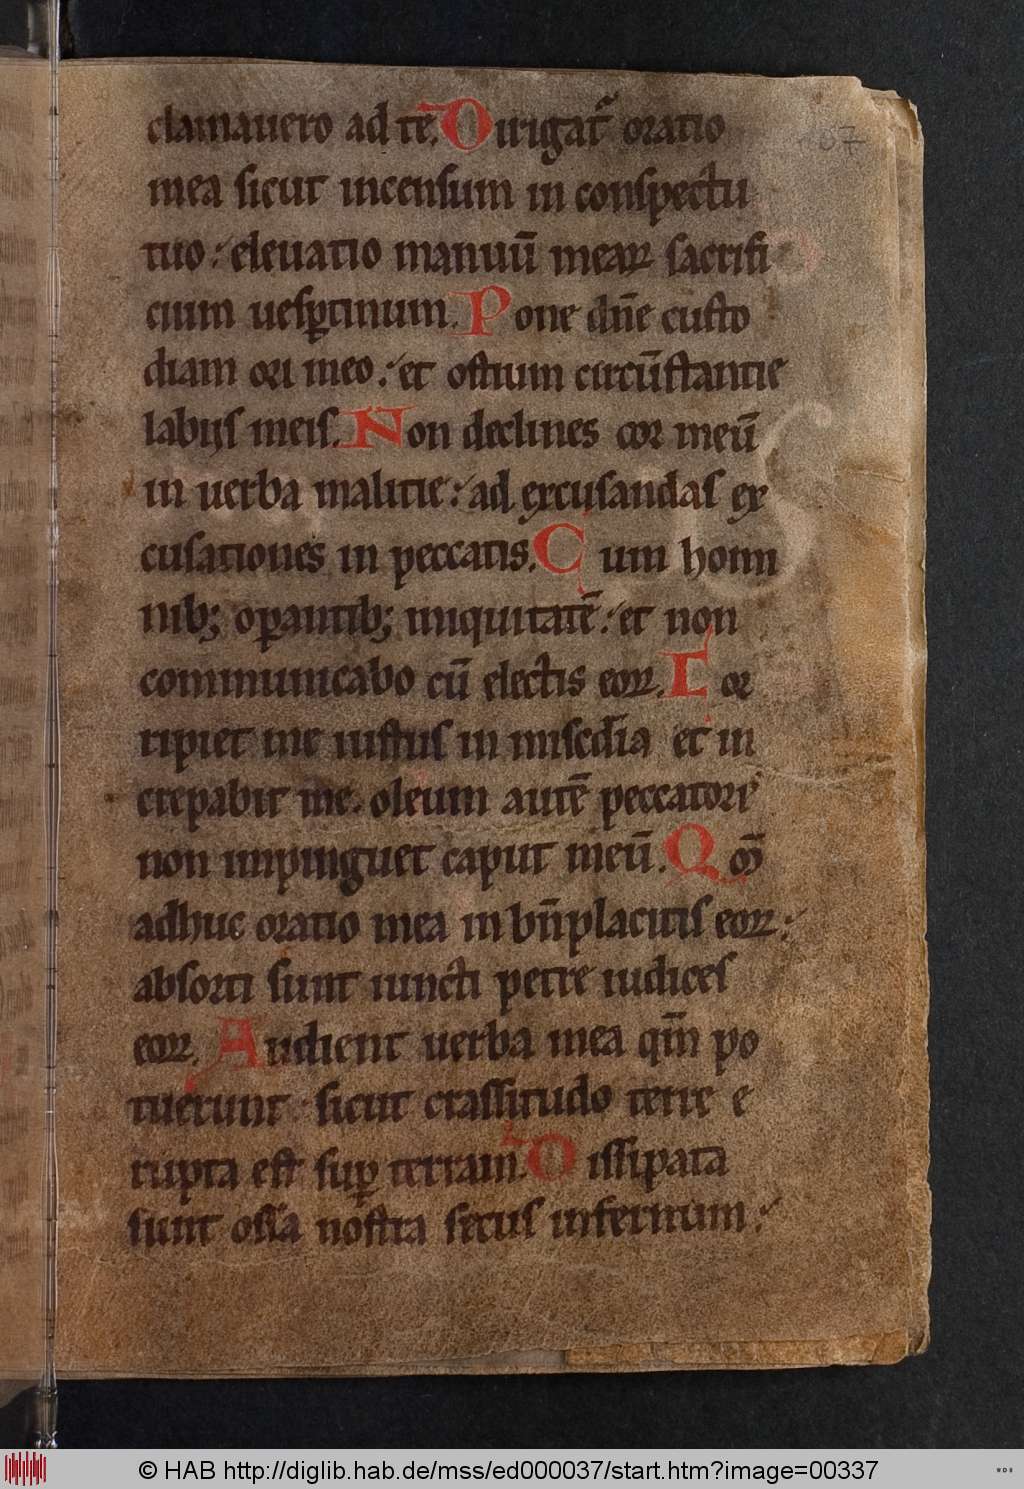 clamauero ad te. Dirigat᷑ oratio
mea sicut incensum in conspectu
tuo: eleuatio manuū mearꝝ sacrifi
cium uesꝑtinum. Pone dn̄e custo
diam ori meo: et ostium circūstantie
labijs meis. Non declines cor meū
in uerba malitie: ad excusandas ex
cusationes in peccatis. Cum homi
nib; oꝑantib; iniquitatē: et non
communicabo cū electis eoꝝ. Cor
ripiet me iustus in misc̄dia et in
crepabit me. oleum autē peccatori
non impinguet caput meū. Qm̄
adhuc oratio mea in bn̄placitis eoꝝ:
absorti sunt iuncti petre iudices
eoꝝ. Audient uerba mea qm̄ po
tuerunt: sicut crassitudo terre e
rupta est suꝑ terram. Dissipata
sunt ossa nostra secus infernum:
107
© HAB http://diglib.hab.de/mss/ed000037/start.htm?image=00337